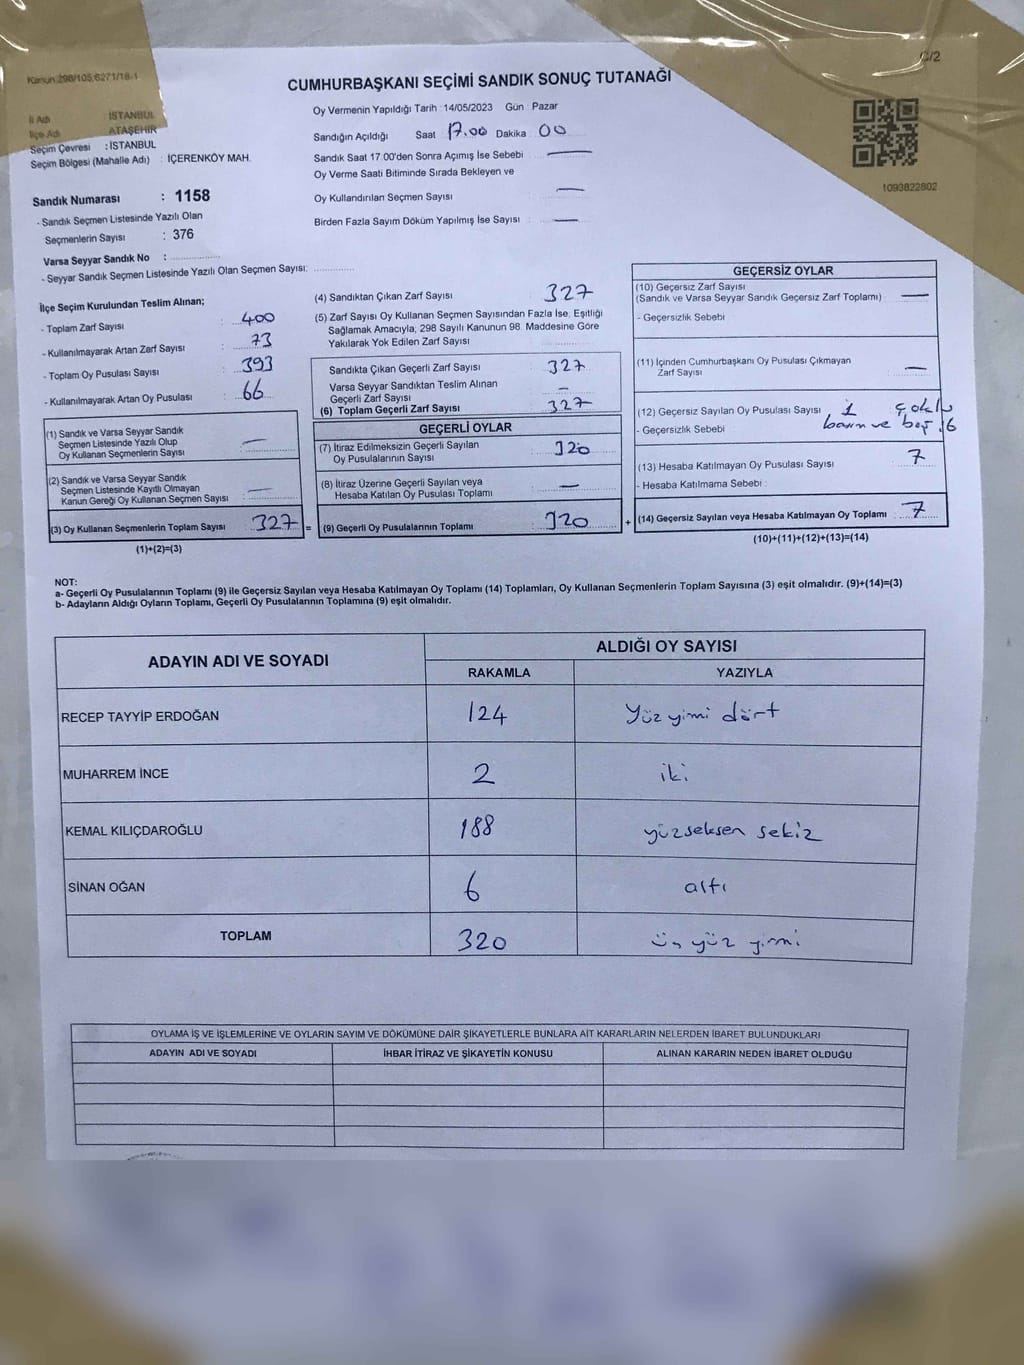 Kanun:298/105,6271/18-1
/2
CUMHURBAŞKANI SEÇİMİ SANDIK SONUÇ TUTANAĞI
İl Adı İSTANBUL
İlçe Adı ATAŞEHİR
Seçim Çevresi : İSTANBUL
Seçim Bölgesi (Mahalle Adı) : İÇERENKÖY MAH.
Oy Vermenin Yapıldığı Tarih : 14/05/2023 Gün : Pazar
Sandığın Açıldığı Saat 17.00 Dakika 00
Sandık Saat 17:00'den Sonra Açımış İse Sebebi —
Oy Verme Saati Bitiminde Sırada Bekleyen ve
Oy Kullandırılan Seçmen Sayısı —
Birden Fazla Sayım Döküm Yapılmış İse Sayısı —
1093822802
Sandık Numarası : 1158
- Sandık Seçmen Listesinde Yazılı Olan
Seçmenlerin Sayısı : 376
Varsa Seyyar Sandık No :
- Seyyar Sandık Seçmen Listesinde Yazılı Olan Seçmen Sayısı:
İlçe Seçim Kurulundan Teslim Alınan;
- Toplam Zarf Sayısı : 400
- Kullanılmayarak Artan Zarf Sayısı : 73
- Toplam Oy Pusulası Sayısı : 393
- Kullanılmayarak Artan Oy Pusulası : 66
(1) Sandık ve Varsa Seyyar Sandık
Seçmen Listesinde Yazılı Olup
Oy Kullanan Seçmenlerin Sayısı : —
(2) Sandık ve Varsa Seyyar Sandık
Seçmen Listesinde Kayıtlı Olmayan
Kanun Gereği Oy Kullanan Seçmen Sayısı : —
(3) Oy Kullanan Seçmenlerin Toplam Sayısı 327 =
(1)+(2)=(3)
(4) Sandıktan Çıkan Zarf Sayısı : 327
(5) Zarf Sayısı Oy Kullanan Seçmen Sayısından Fazla İse, Eşitliği
Sağlamak Amacıyla; 298 Sayılı Kanunun 98. Maddesine Göre
Yakılarak Yok Edilen Zarf Sayısı
Sandıkta Çıkan Geçerli Zarf Sayısı : 327
Varsa Seyyar Sandıktan Teslim Alınan
Geçerli Zarf Sayısı : —
(6) Toplam Geçerli Zarf Sayısı : 327
GEÇERLİ OYLAR
(7) İtiraz Edilmeksizin Geçerli Sayılan
Oy Pusulalarının Sayısı : 320
(8) İtiraz Üzerine Geçerli Sayılan veya
Hesaba Katılan Oy Pusulası Toplamı : —
(9) Geçerli Oy Pusulalarının Toplamı : 320 +
GEÇERSİZ OYLAR
(10) Geçersiz Zarf Sayısı
(Sandık ve Varsa Seyyar Sandık Geçersiz Zarf Toplamı) : —
- Geçersizlik Sebebi
(11) İçinden Cumhurbaşkanı Oy Pusulası Çıkmayan
Zarf Sayısı : —
(12) Geçersiz Sayılan Oy Pusulası Sayısı 1 çoklu
- Geçersizlik Sebebi ve 6
(13) Hesaba Katılmayan Oy Pusulası Sayısı : 7
- Hesaba Katılmama Sebebi :
(14) Geçersiz Sayılan veya Hesaba Katılmayan Oy Toplamı : 7
(10)+(11)+(12)+(13)=(14)
NOT:
a- Geçerli Oy Pusulalarının Toplamı (9) ile Geçersiz Sayılan veya Hesaba Katılmayan Oy Toplamı (14) Toplamları, Oy Kullanan Seçmenlerin Toplam Sayısına (3) eşit olmalıdır. (9)+(14)=(3)
b- Adayların Aldığı Oyların Toplamı, Geçerli Oy Pusulalarının Toplamına (9) eşit olmalıdır.
ADAYIN ADI VE SOYADI ALDIĞI OY SAYISI
RAKAMLA YAZIYLA
RECEP TAYYİP ERDOĞAN 124 Yüz yimi dört
MUHARREM İNCE 2 iki
KEMAL KILIÇDAROĞLU 188 yüzseksen sekiz
SİNAN OĞAN 6 altı
TOPLAM 320 üç yüz yirmi
OYLAMA İŞ VE İŞLEMLERİNE VE OYLARIN SAYIM VE DÖKÜMÜNE DAİR ŞİKAYETLERLE BUNLARA AİT KARARLARIN NELERDEN İBARET BULUNDUKLARI
ADAYIN ADI VE SOYADI İHBAR İTİRAZ VE ŞİKAYETİN KONUSU ALINAN KARARIN NEDEN İBARET OLDUĞU